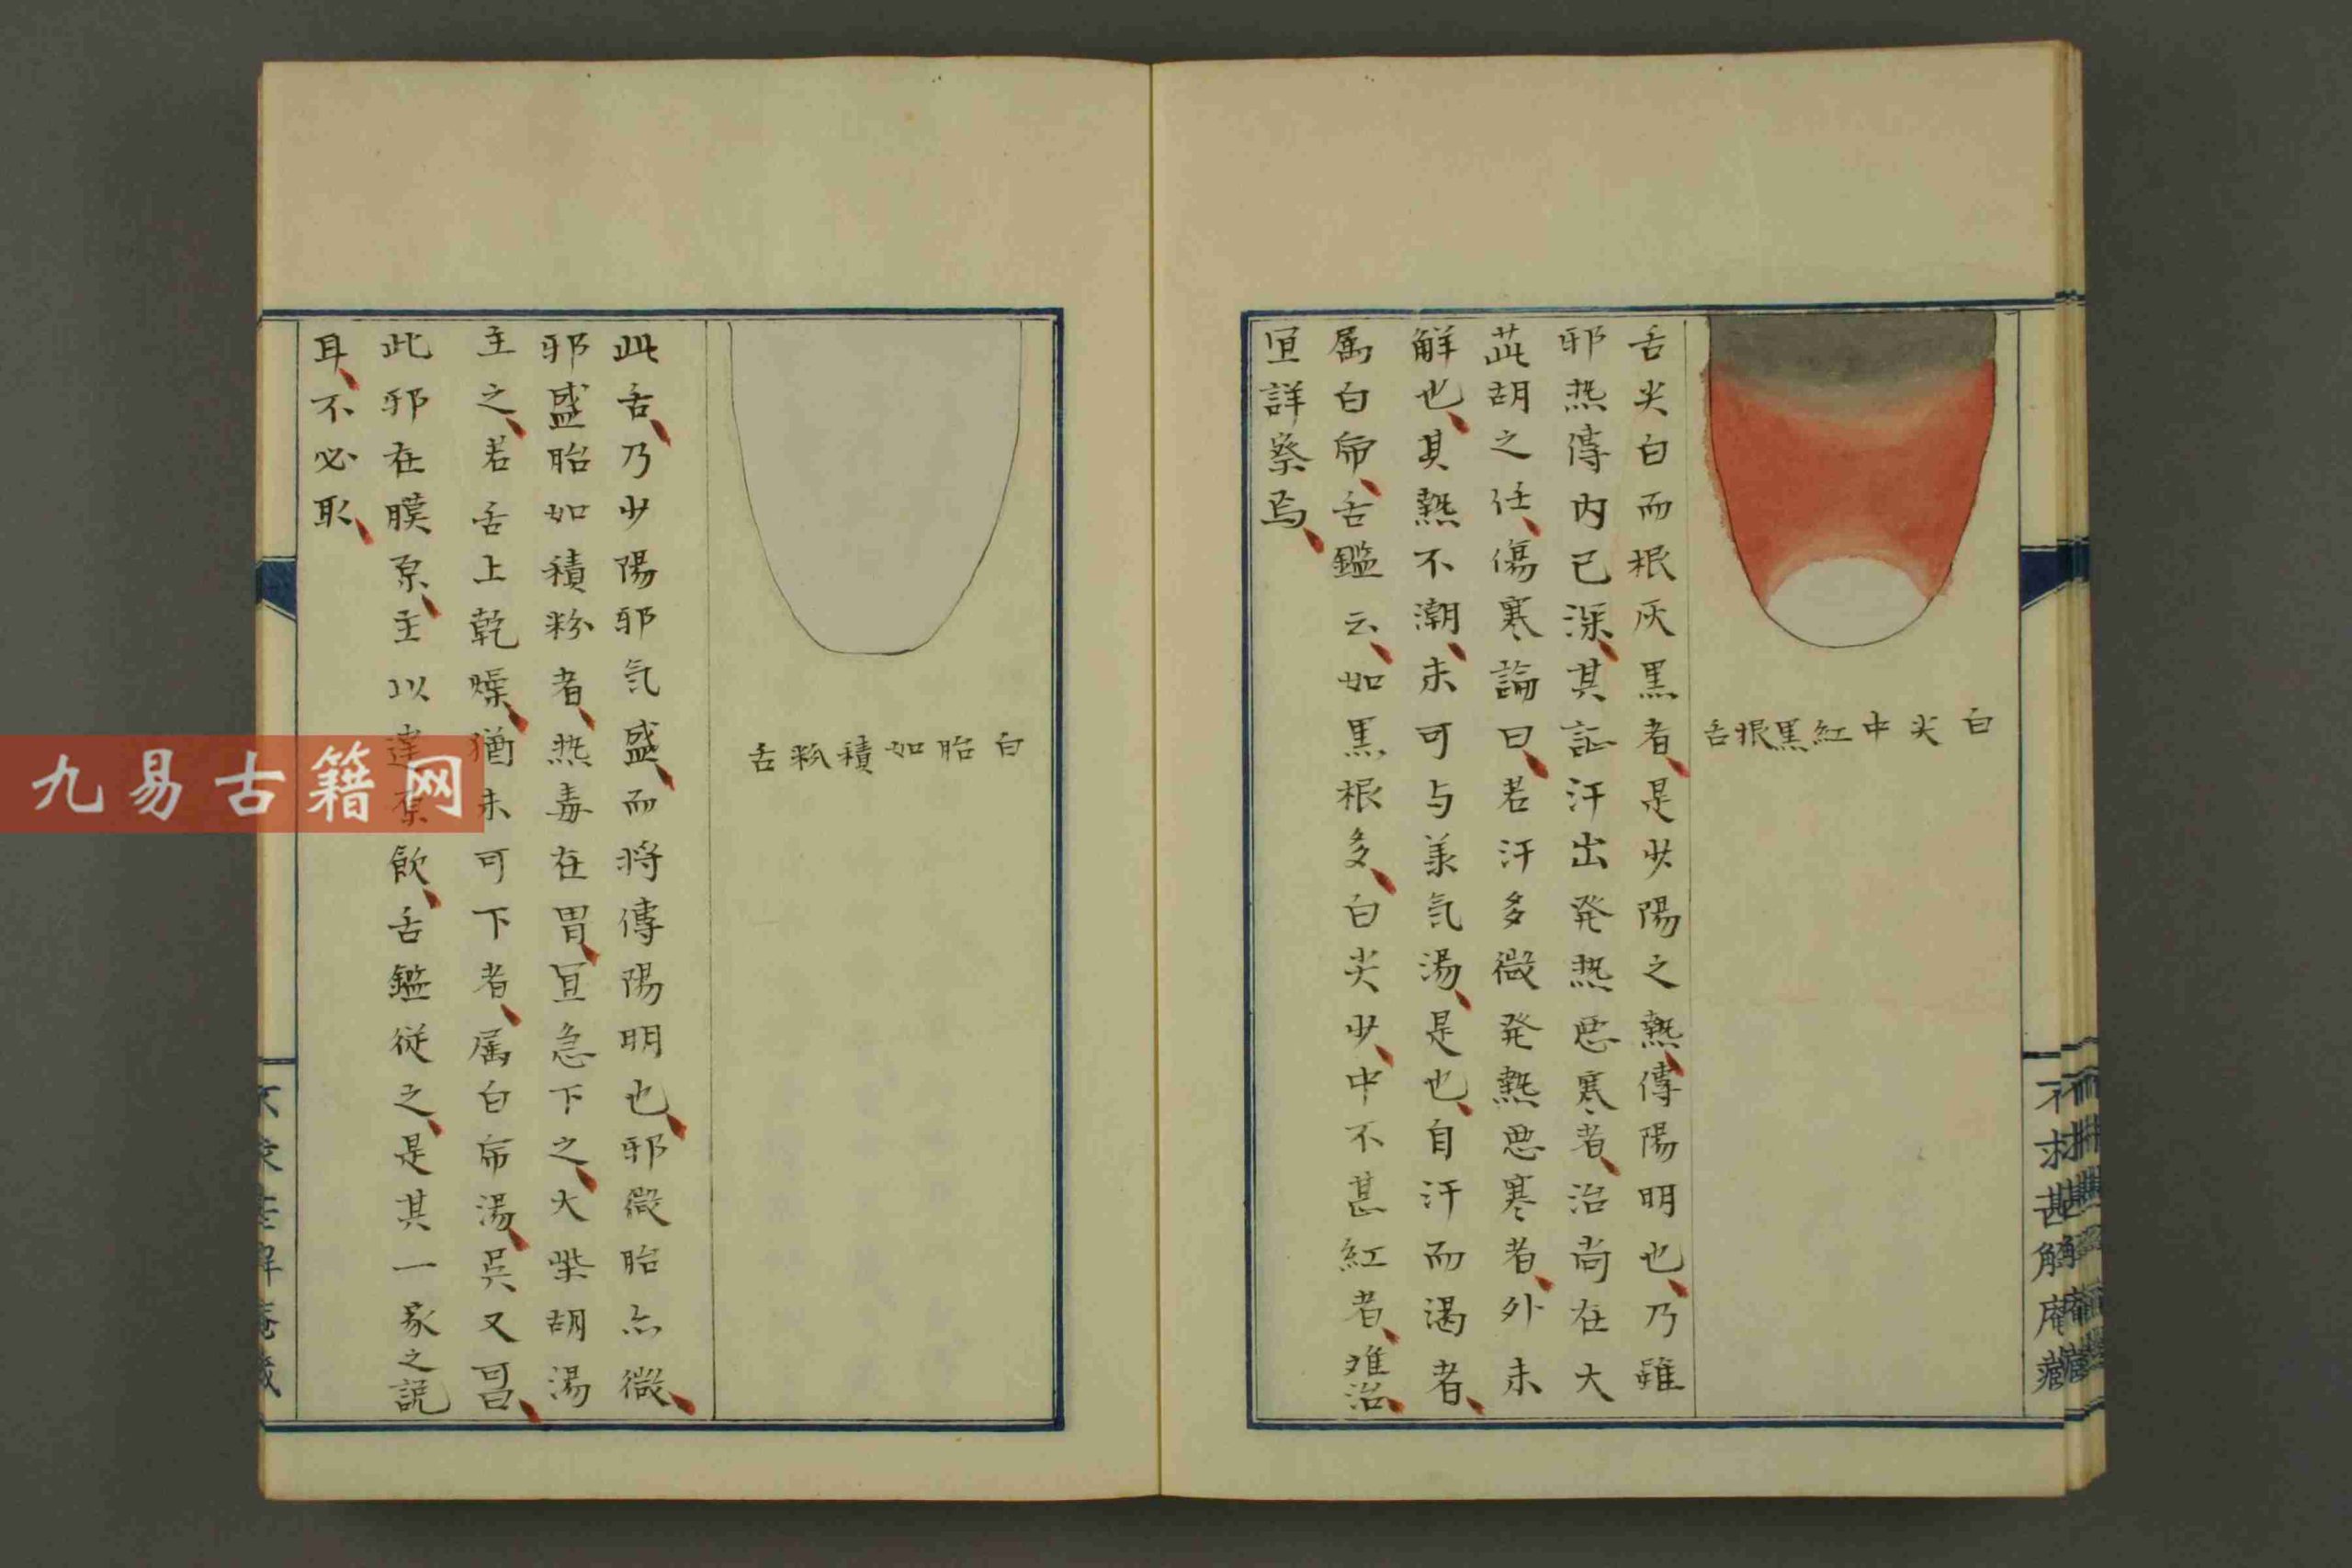 白尖中紅黒根舌
舌尖白而根灰黒者、是少陽之熱、傳陽明也、乃雖
邪热傳内已深、其証汗出発热悪寒者、治尚在大
茈胡之任、傷寒論曰、若汗多微発熱悪寒者、外未
解也、其熱不潮、未可与羕气湯、是也、自汗而渇者、
属白帍、舌鑑云、如黒根多、白尖少、中不甚紅者、难治、
宜詳察焉、
白胎如積粉舌
此舌、乃少陽邪气盛、而将傳陽明也、邪微胎亦微、
邪盛胎如積粉者、热毒在胃、宜急下之、大柴胡湯
主之、若舌上乾燥、猶未可下者、属白帍湯、吴又可曰、
此邪在膜原、主以達原飲、舌鑑従之、是其一家之説
耳、不必取、
不求甚解庵藏
九易古籍网